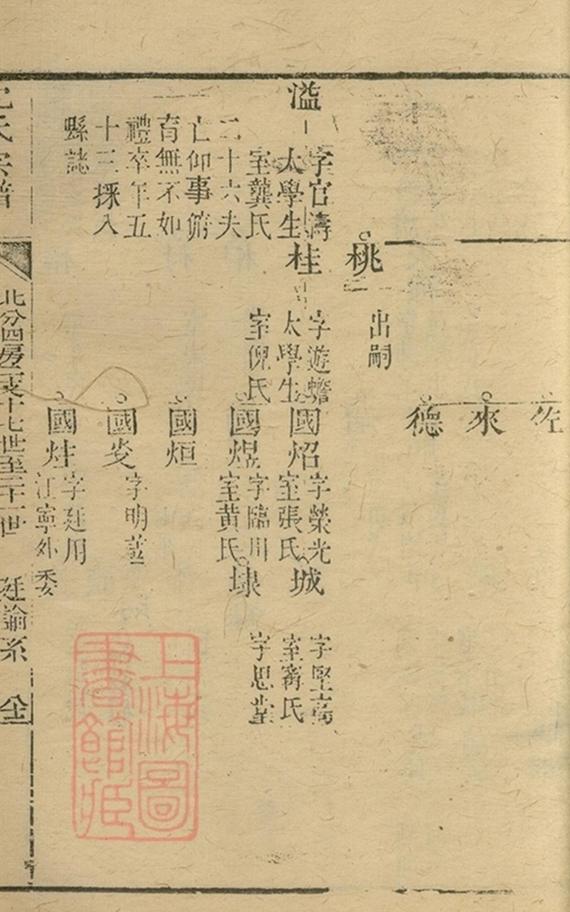 佐
來
德
桃
出嗣
溢
字官濤
太學生
室龔氏
二十六夫
亡仰事俯
育無不如
禮卒年五
十三採入
縣誌
桂
字遊蟾
太學生
室倪氏
國炤
字榮光
室張氏
國煜
字臨川
室黄氏
國烜
國炎
字明
國炷
字廷用
江寧外委
城
字堅高
室甯氏
埭
字思堂
氏宗譜
北分四房
十七世至二十一世
廷諭系
上海圖
書館